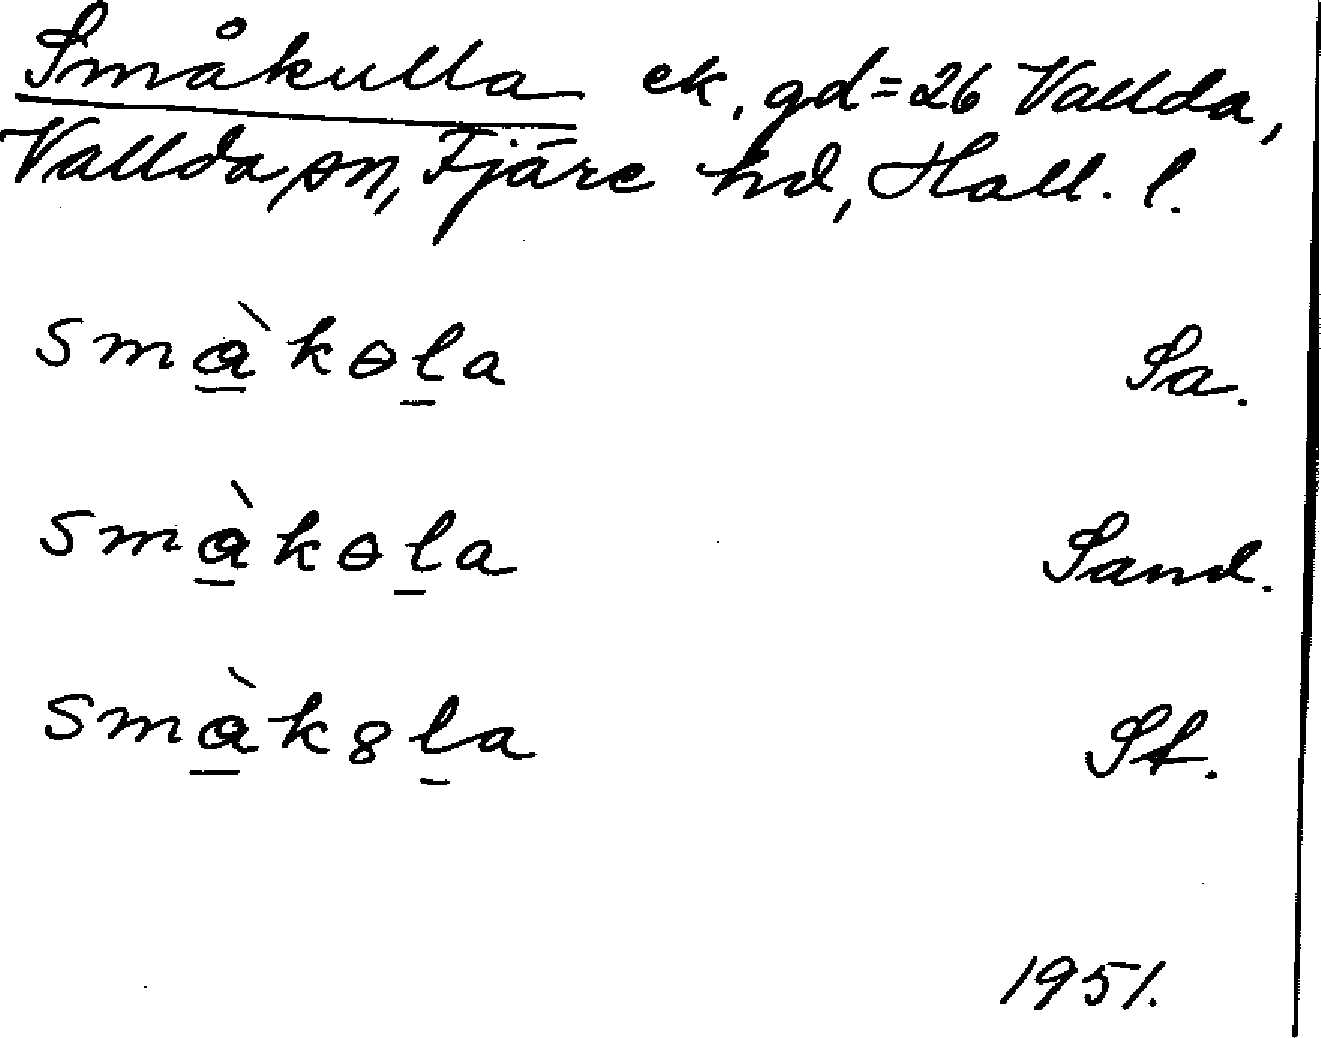 Småkulla ek. gd=26 Vallda,
Vallda sn, Fjäre hd, Hall. l.
smàkɵla Sa.
smàkɵla Sand.
smàk8la St.
1951.